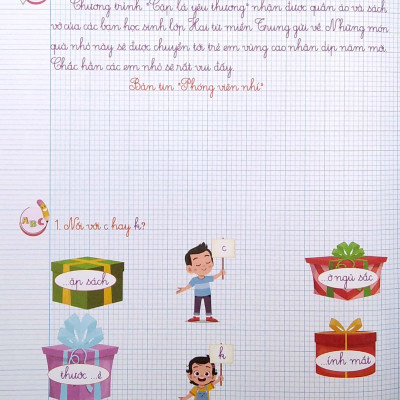 Chương trình "Cặp lá yêu thương" nhận được quần áo và sách
vở của các bạn học sinh lớp Hai từ miền Trung gửi về. Những món
quà nhỏ này sẽ được chuyển tới trẻ em vùng cao nhân dịp năm mới.
Chắc hẳn các em nhỏ sẽ rất vui đấy.
Bản tin "Phóng viên nhí"
ABC
1. Nối với c hay k?
c
...ặp sách
...ờ ngũ sắc
k
thước ...ẻ
...ính mắt